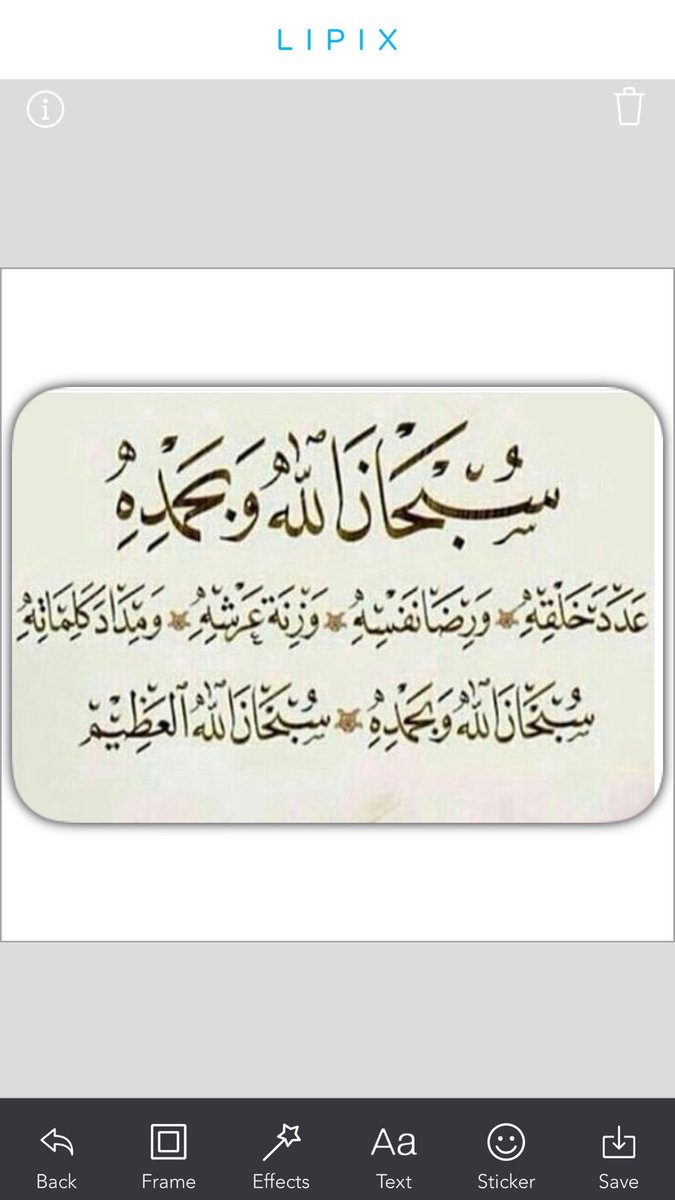 LIPIX
سُبْحَانَ اللهِ وَبِحَمْدِهِ
عَدَدَ خَلْقِهِ وَرِضَا نَفْسِهِ وَزِنَةَ عَرْشِهِ وَمِدَادَ كَلِمَاتِهِ
سُبْحَانَ اللهِ وَبِحَمْدِهِ سُبْحَانَ اللهِ الْعَظِيْمِ
Back Frame Effects Text Sticker Save